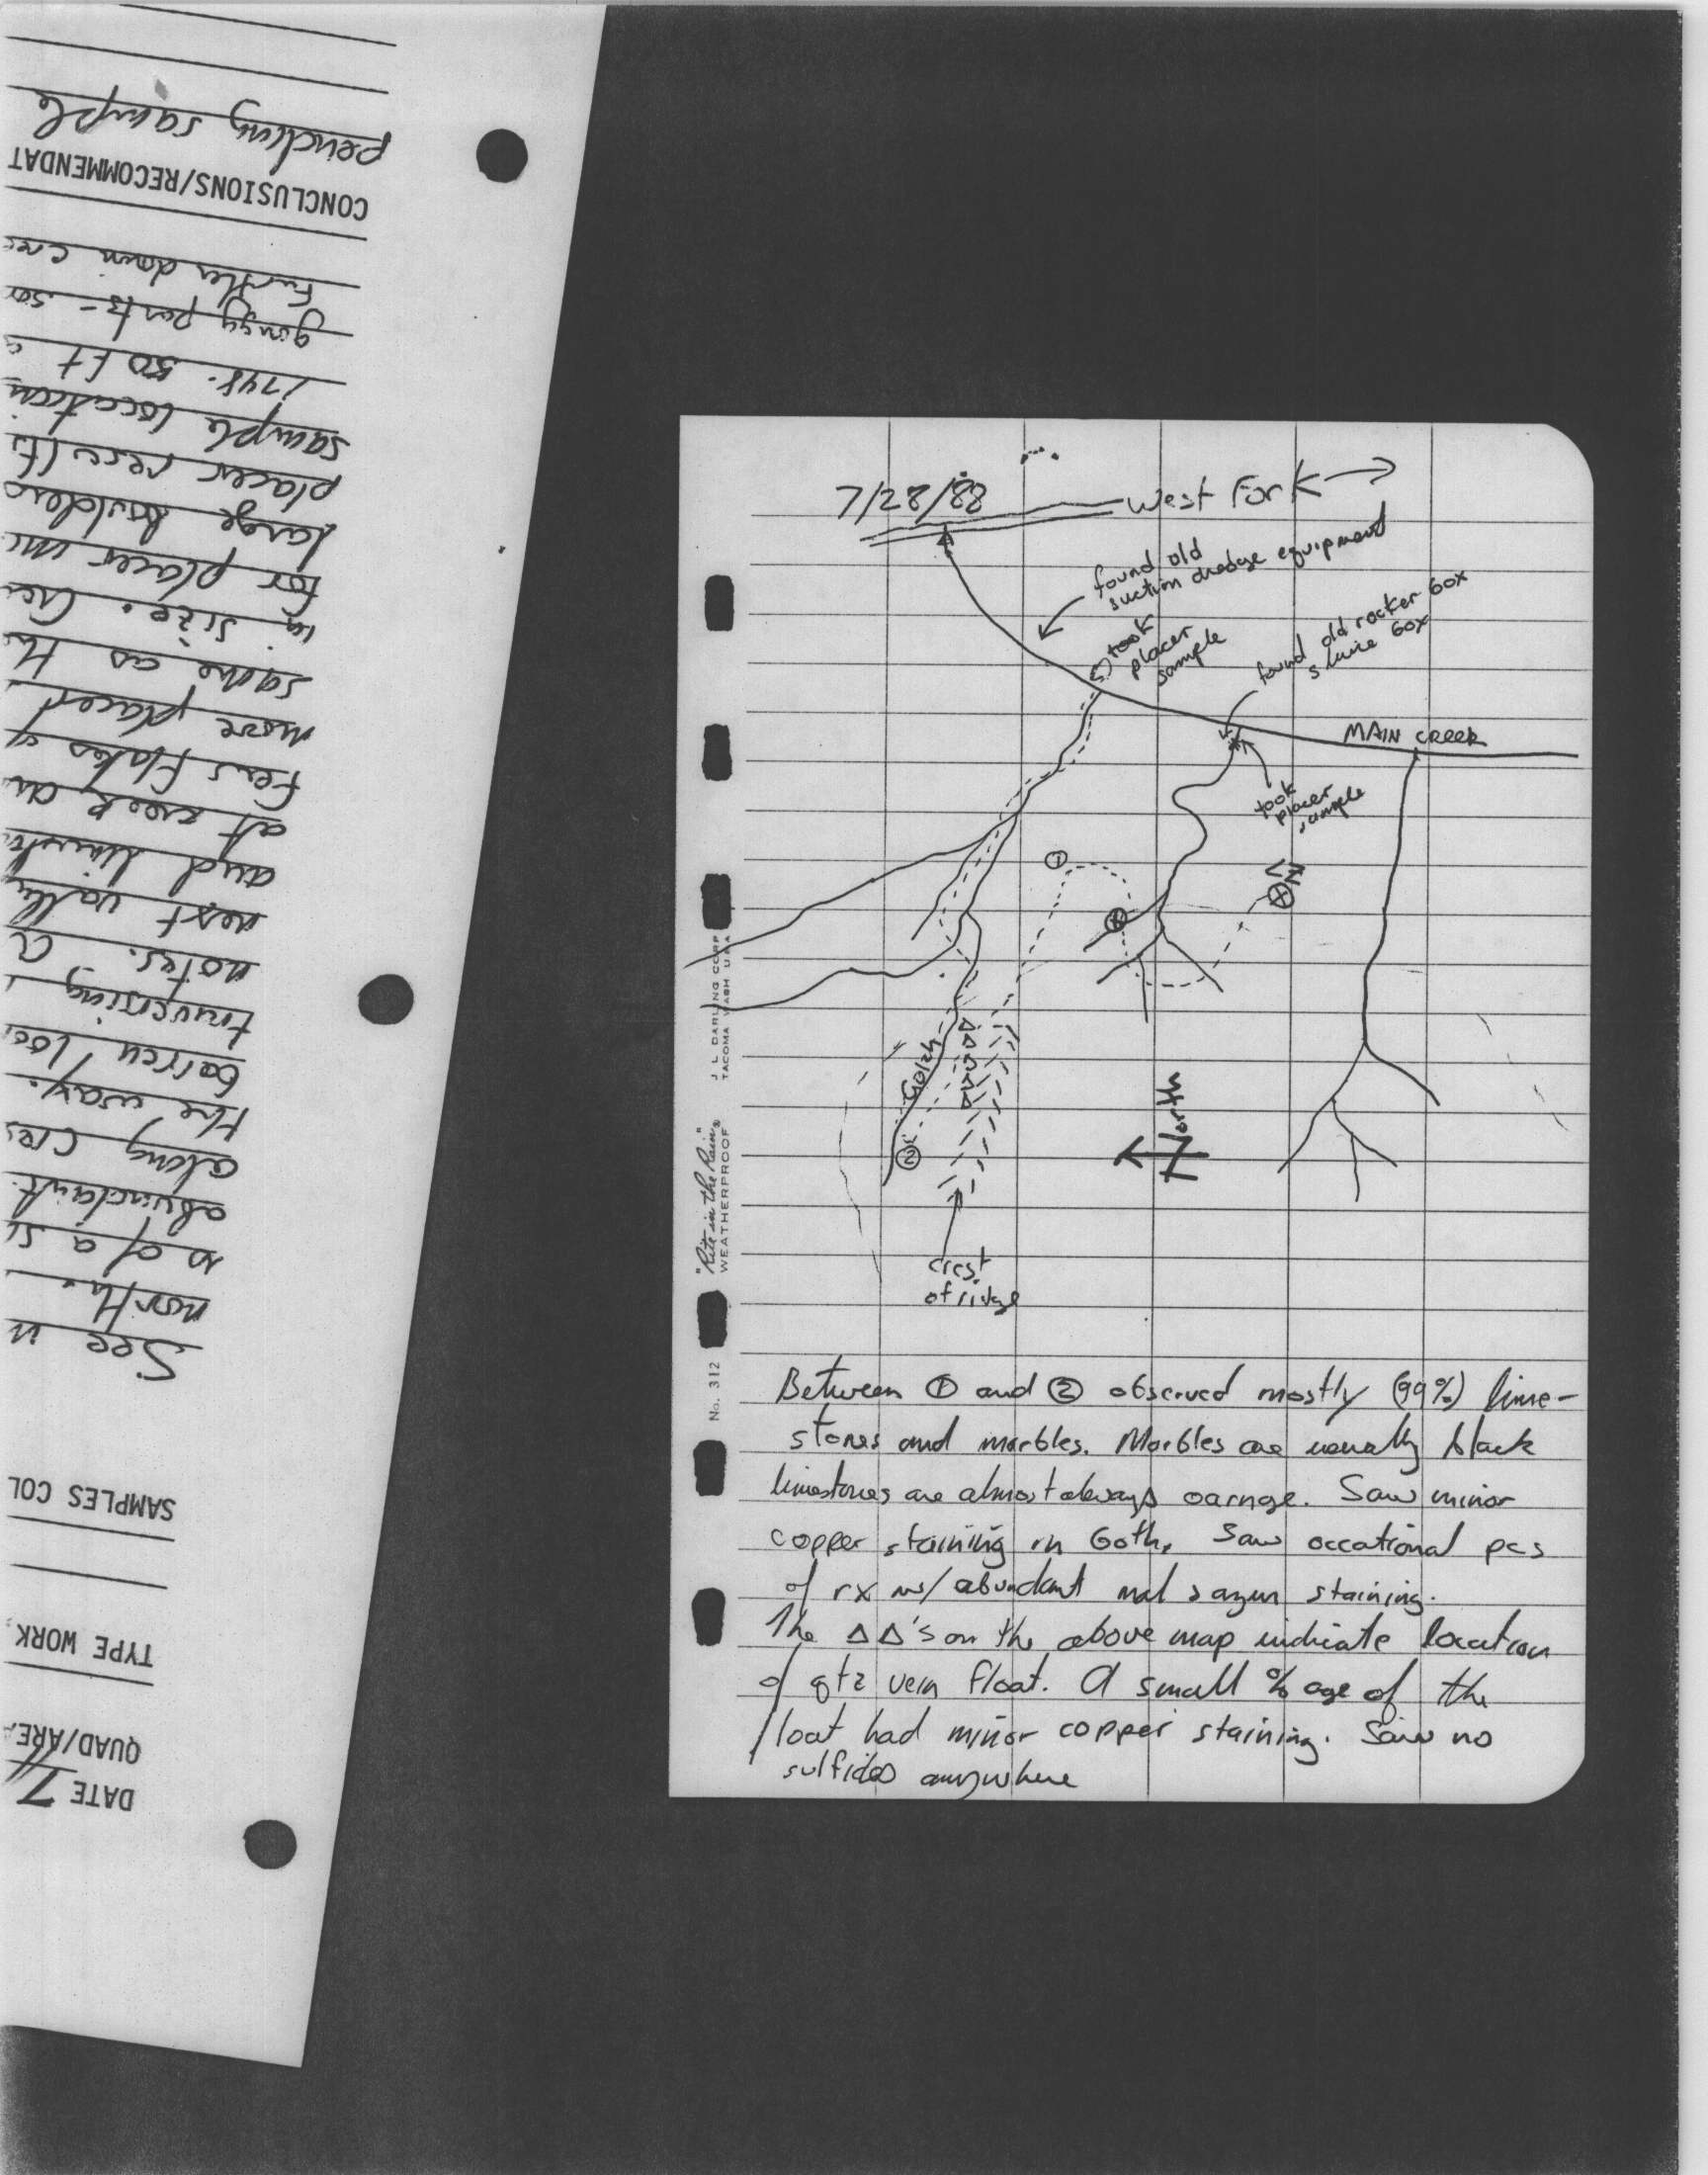 7/28/88
West Fork
found old
suction dredge equipment
took
placer
sample
found old rocker box
sluice box
MAIN CREEK
took
placer
sample
①
LZ
Gulch
②
North
crest
of ridge
Between ① and ② observed mostly (99%) lime-
stones and marbles. Marbles are usually black
limestones are almost always oarnge. Saw minor
copper staining in both. Saw occational pcs
of rx w/ abundant mal & azur staining.
The ΔΔ's on the above map indicate location
of qtz vein float. A small % age of the
float had minor copper staining. Saw no
sulfides anywhere
"Rite in the Rain"
WEATHERPROOF
J L DARLING CORP
TACOMA WASH USA
No. 312
DATE 7/
QUAD/AREA
TYPE WORK,
SAMPLES COL
See in
north.
s of a si
abundant.
along cre
the way.
barren / loc
traversing
notes. A
next valle
and limesto
at creek an
Few flakes of
more placer
same as the
in size.
for placer mi
Large boulders
placer results
sample location
1748. 50 ft
Further down cree
CONCLUSIONS/RECOMMENDAT
pending sample